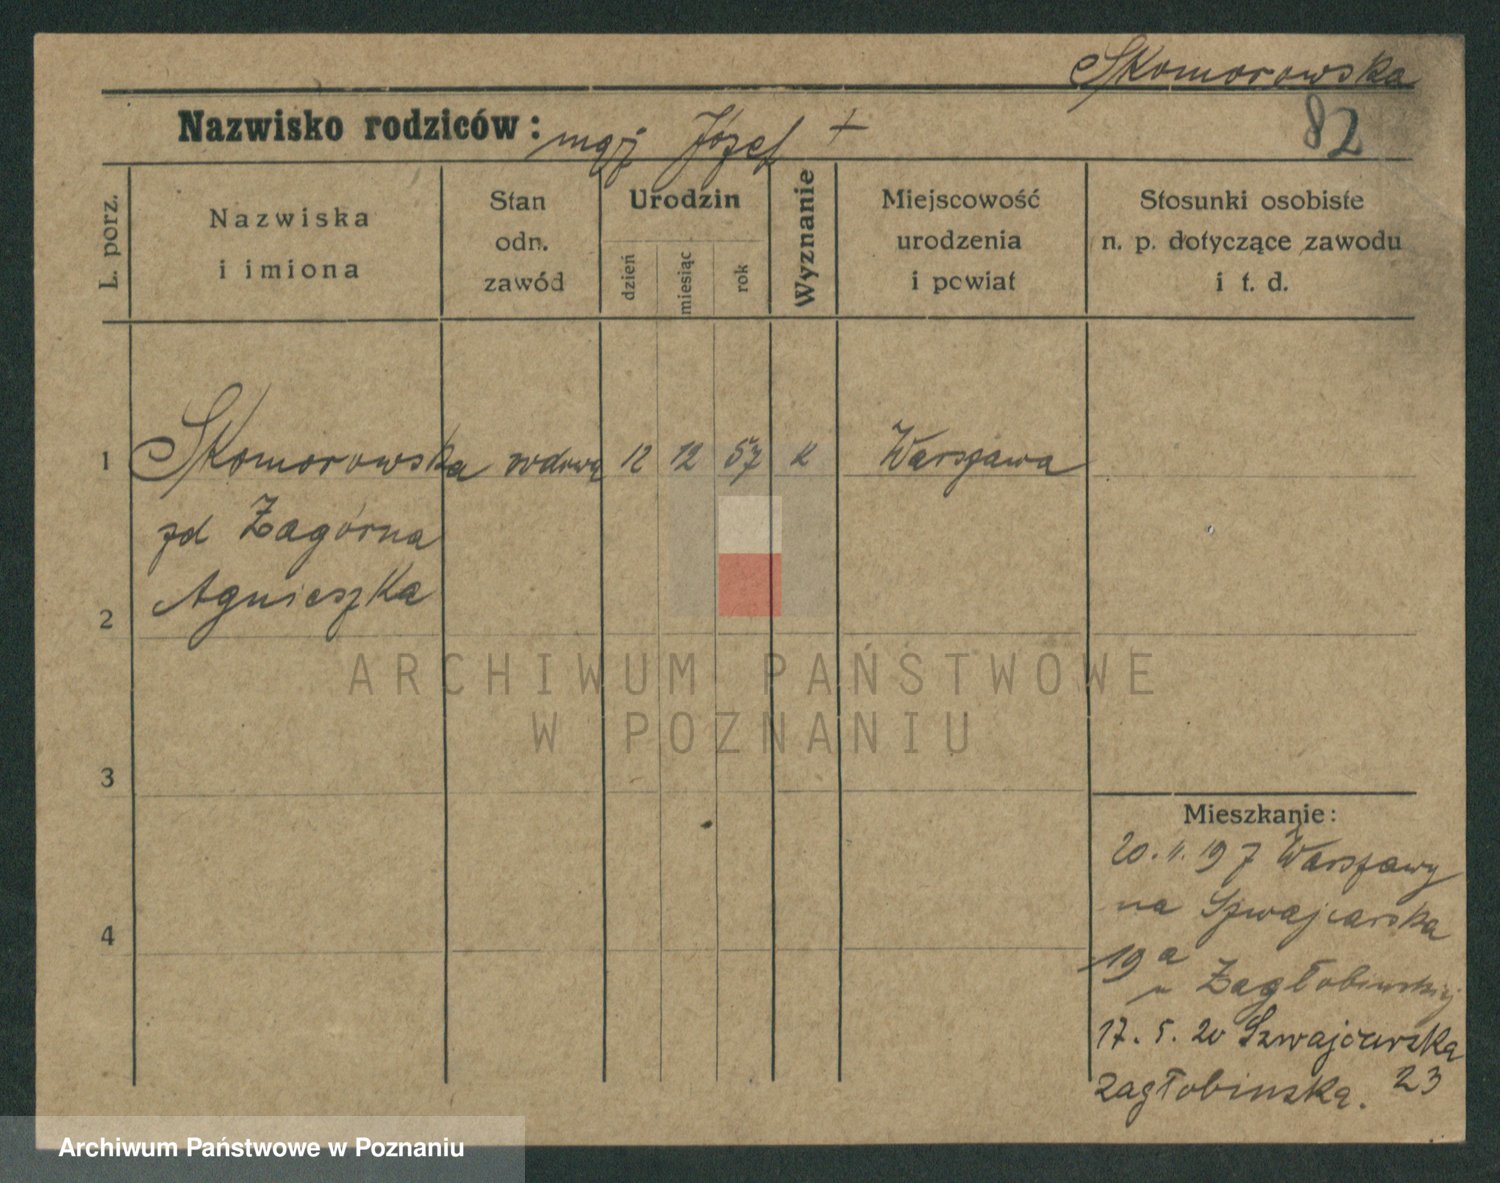 Skomorowska
82
Nazwisko rodziców: mąż Józef +
L. porz.
Nazwiska
i imiona
Stan
odn.
zawód
Urodzin
dzień
miesiąc
rok
Wyznanie
Miejscowość
urodzenia
i powiat
Stosunki osobiste
n. p. dotyczące zawodu
i t. d.
1 Skomorowska wdową 12 12 57 k Warszawa
zd Zagórna
Agnieszka
2
3
4
Mieszkanie:
20. 11. 19 z Warszawy
na Szwajcarska
19 a
u Zagłobinskiej
17. 5. 20 Szwajcarska
23
Zagłobinska.
ARCHIWUM PAŃSTWOWE
W POZNANIU
Archiwum Państwowe w Poznaniu